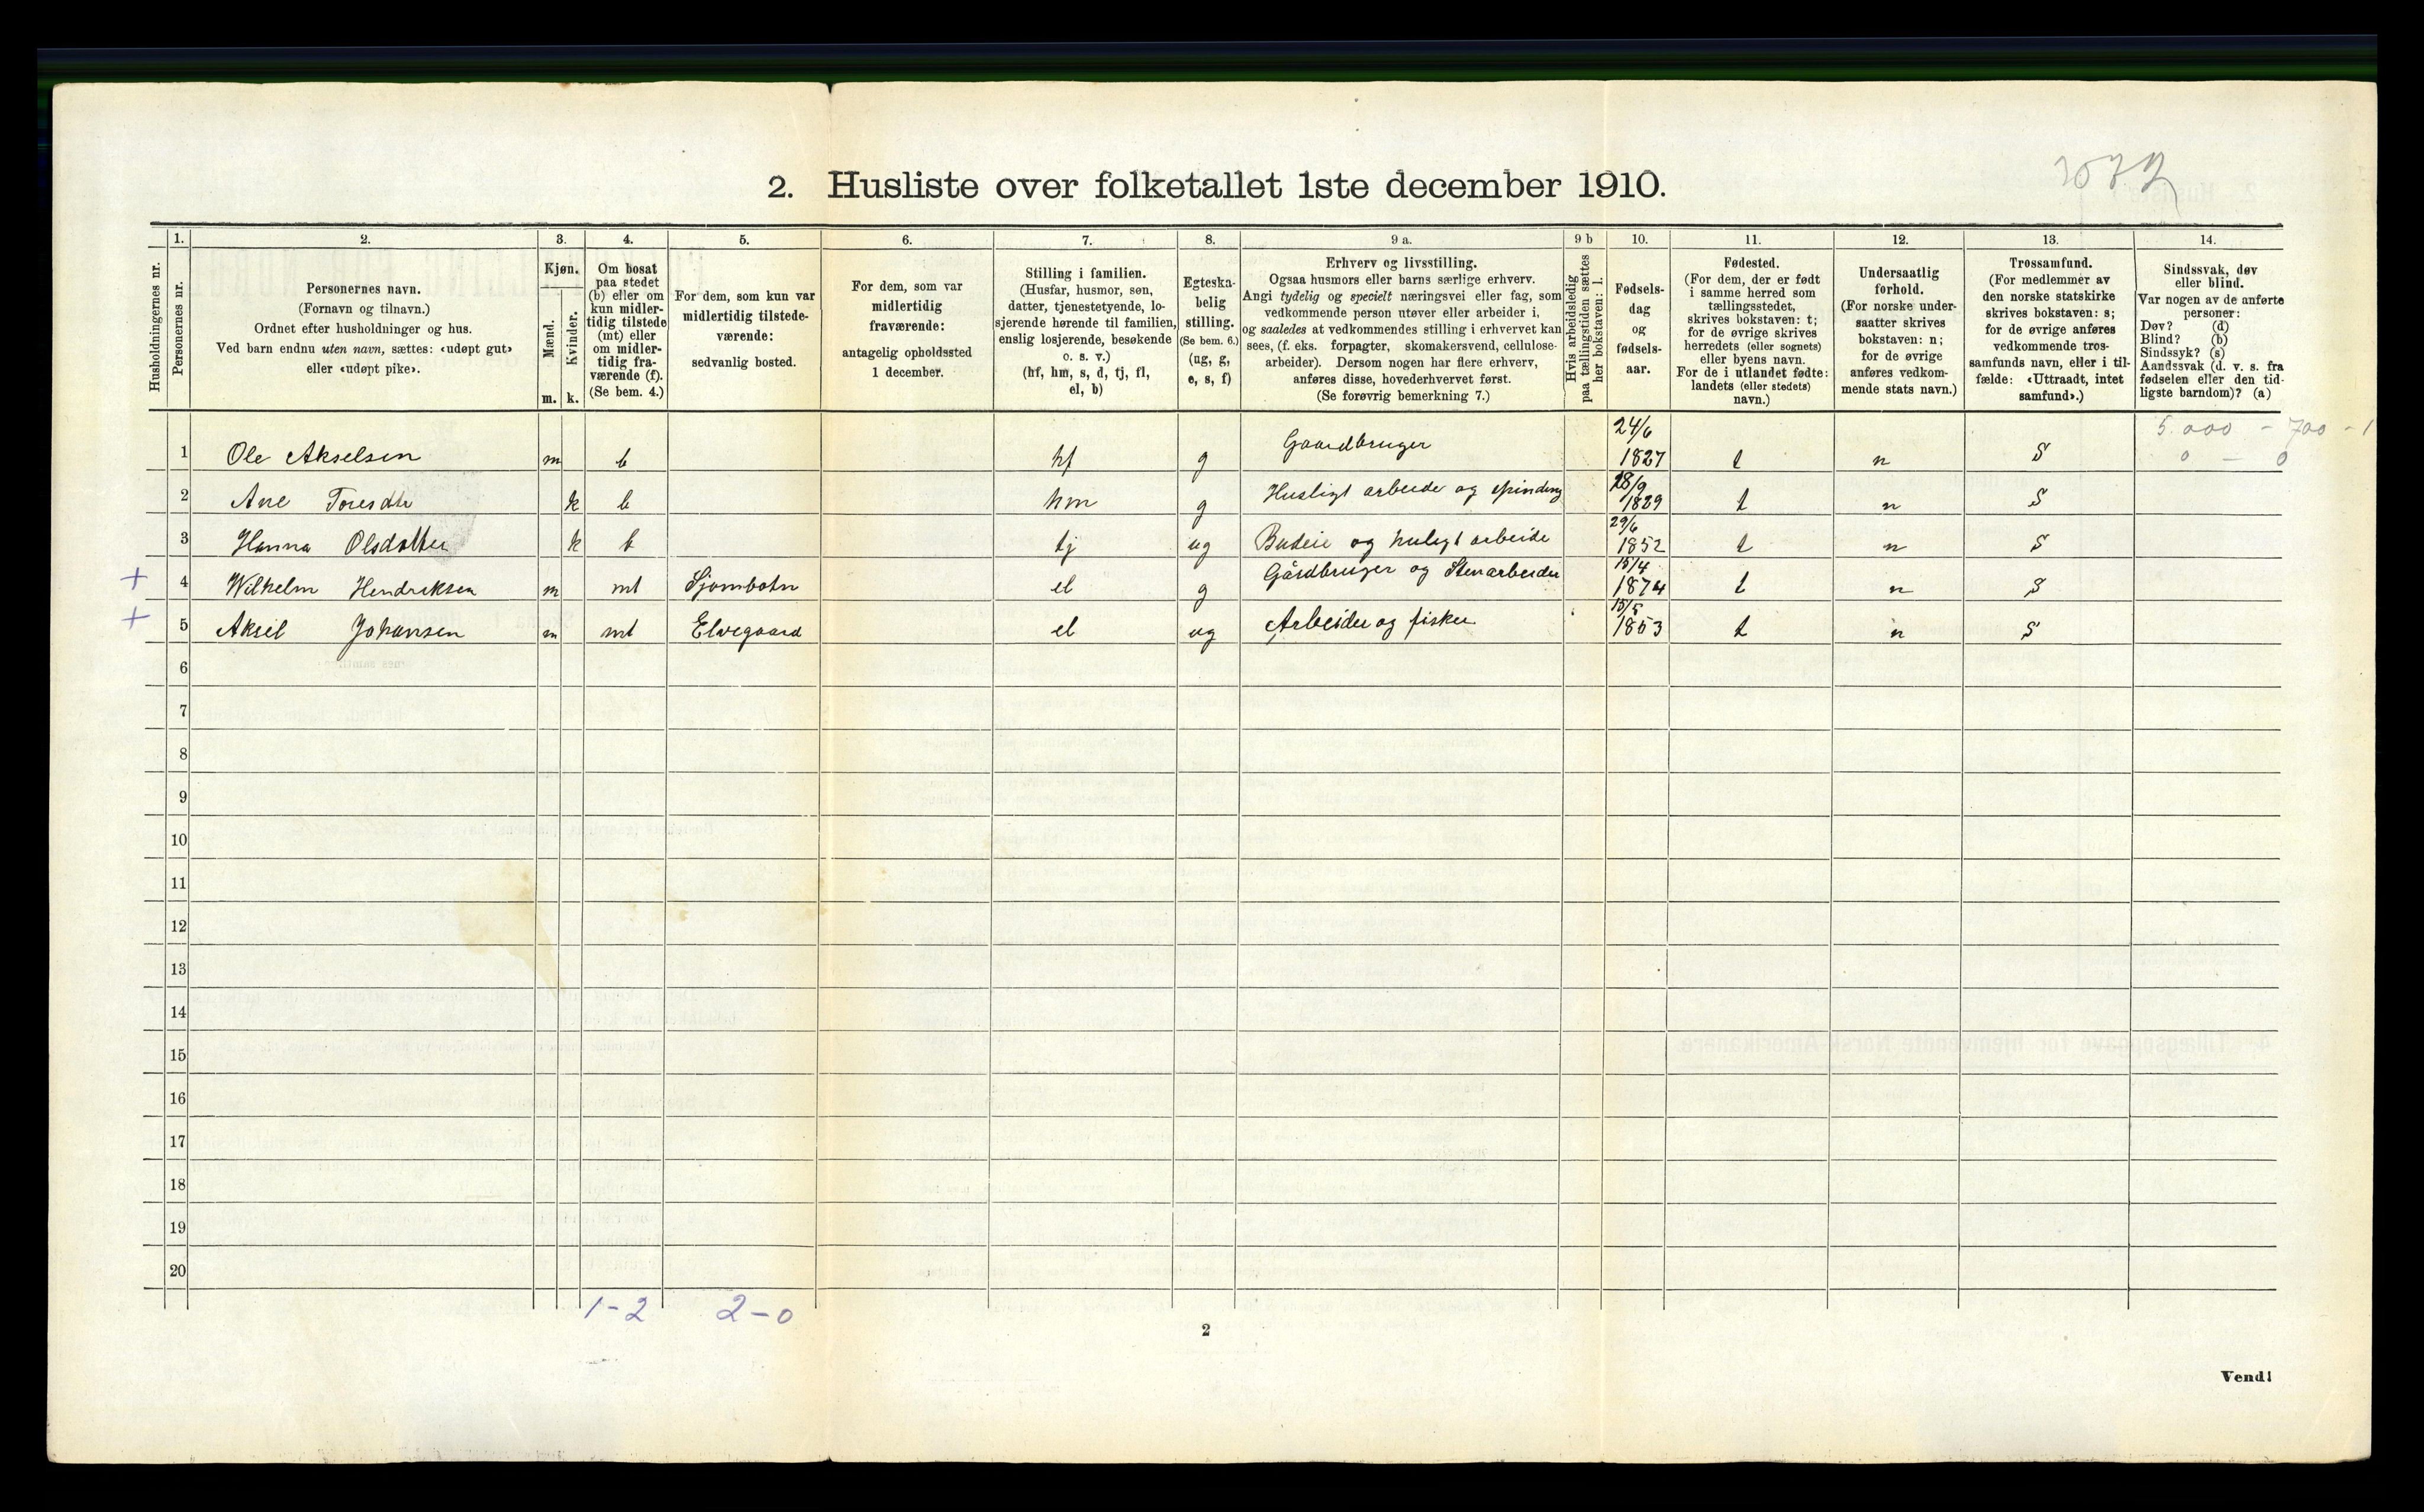 2. Husliste over folketallet 1ste december 1910.
Husholdningernes nr.
1.
Personernes nr.
2.
Personernes navn.
(Fornavn og tilnavn.)
Ordnet efter husholdninger og hus.
Ved barn endnu uten navn, sættes: «udøpt gut»
eller «udøpt pike».
3.
Kjøn.
Mænd.
Kvinder.
m.
k.
4.
Om bosat
paa stedet
(b) eller om
kun midler-
tidig tilstede
(mt) eller
om midler-
tidig fra-
værende (f).
(Se bem. 4.)
5.
For dem, som kun var
midlertidig tilstede-
værende:
sedvanlig bosted.
6.
For dem, som var
midlertidig
fraværende:
antagelig opholdssted
1 december.
7.
Stilling i familien.
(Husfar, husmor, søn,
datter, tjenestetyende, lo-
sjerende hørende til familien,
enslig losjerende, besøkende
o. s. v.)
(hf, hm, s, d, tj, fl,
el, b)
8.
Egteska-
belig
stilling.
(Se bem. 6.)
(ug, g,
e, s, f)
9 a.
Erhverv og livsstilling.
Ogsaa husmors eller barns særlige erhverv.
Angi tydelig og specielt næringsvei eller fag, som
vedkommende person utøver eller arbeider i,
og saaledes at vedkommendes stilling i erhvervet kan
sees, (f. eks. forpagter, skomakersvend, cellulose-
arbeider). Dersom nogen har flere erhverv,
anføres disse, hovederhvervet først.
(Se forøvrig bemerkning 7.)
9 b
Hvis arbeidsledig
paa tællingstiden sættes
her bokstaven: l.
10.
Fødsels-
dag
og
fødsels-
aar.
11.
Fødested.
(For dem, der er født
i samme herred som
tællingsstedet,
skrives bokstaven: t;
for de øvrige skrives
herredets (eller sognets)
eller byens navn.
For de i utlandet fødte:
landets (eller stedets)
navn.)
12.
Undersaatlig
forhold.
(For norske under-
saatter skrives
bokstaven: n;
for de øvrige
anføres vedkom-
mende stats navn.)
13.
Trossamfund.
(For medlemmer av
den norske statskirke
skrives bokstaven: s;
for de øvrige anføres
vedkommende tros-
samfunds navn, eller i til-
fælde: «Uttraadt, intet
samfund».)
14.
Sindssvak, døv
eller blind.
Var nogen av de anførte
personer:
Døv? (d)
Blind? (b)
Sindssyk? (s)
Aandssvak (d. v. s. fra
fødselen eller den tid-
ligste barndom)? (a)
5.000 - 700 - 1
0 - 0
1 Ole Akselsen m b hf g Gaardbruger 24/6 1827 t n S
2 Ane Toresdtr k b hm g Husligt arbeide og spinding 28/9 1829 t n S
3 Hanna Olsdatter k b tj ug Budeie og husligt arbeide 29/6 1852 t n S
+ 4 Wilhelm Hendriksen m mt Sjombotn el g Gårdbruger og Stenarbeider 15/4 1874 t n S
+ 5 Aksel Johansen m mt Elvegaard el ug Arbeider og fisker 15/5 1853 t n S
6
7
8
9
10
11
12
13
14
15
16
17
18
19
20
1-2 2-0
2
Vend!